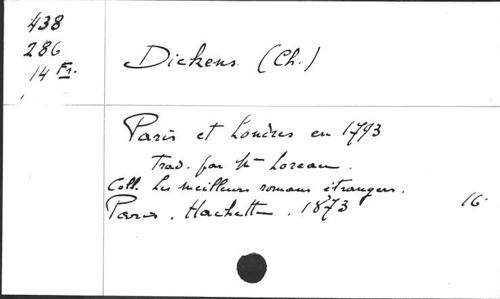 438
286
14 Fr.
Dickens (Ch.)
Paris et Londres en 1793
trad. par Mme Loreau.
Coll. Les meilleurs romans étrangers.
Paris. Hachette. 1873 16°